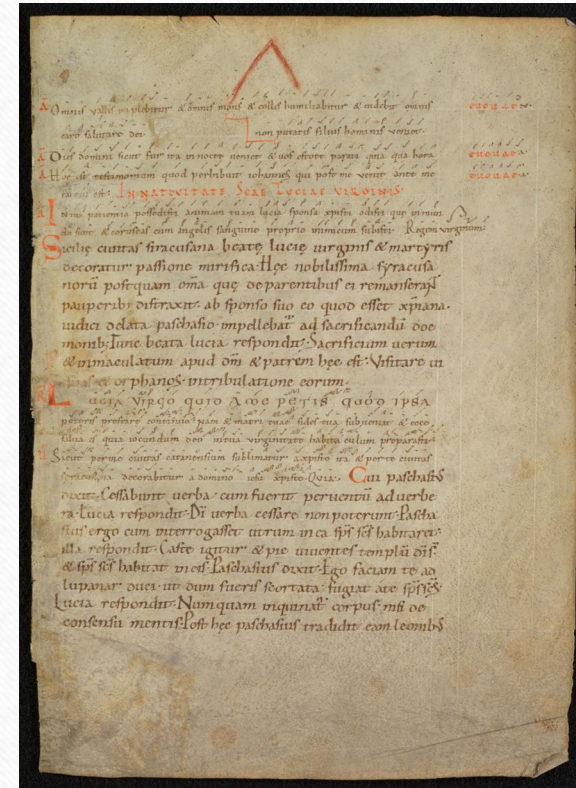 Omnis vallis implebitur & omnis mons & collis humiliabitur & videbit omnis euouae
caro salutare dei non putatis filius hominis veniet
Dies domini sicut fur ita in nocte veniet & vos estote parati quia qua hora euouae
Hoc est testimonium quod perhibuit iohannes qui post me venit ante me euouae
factus est IN NATIVITATE SCAE LUCIAE VIRGINIS
In tua patientia possedisti animam tuam lucia sponsa xpisti odisti que in mun
do sunt & coruscas cum angelis sanguine proprio inimicum Regem virginum
Sicilie civitas siracusana beate lucie virginis & martyris
decoratur passione mirifica. Hec nobilissima syracusa
norū postquam oma que de parentibus ei remanserant
pauperib; distraxit. ab sponso suo eo quod esset xpiana.
iudici delata paschasio. inpellebat ad sacrificandū
monib; Tunc beata lucia respondit. Sacrificium verum
& inmaculatum apud dm & patrem hec est. Visitare vi
& orphanos intribulatione eorum.
LUCIA VIRGO QUID A ME PETIS QUOD IPSA
poteris prestare continuo nam & matri tuae fides tua subvenit & ecce
tu quia iocundum deo in tua virginitate habitaculum preparasti
Sicut per me civitas catanensium sublimatur a xpisto ita & per te civitas
siracusana decorabitur a domino xpisto. Quia. Cui paschasius
dixit. Cessabunt verba. cum fuerit perventū ad verbe
ra. Lucia respondit. Di verba cessare non poterint. Pascha
sius ergo cum interrogasset utrum in ea sps scs habitaret.
illa respondit. Caste igitur & pie viventes templū di st
& sps scs habitat in eis. Paschasius dixit. Ego faciam te ad
lupanar duci. ut dum fueris scortata. fugiat a te sps scs.
Lucia respondit. Numquam inquinat corpus nisi de
consensu mentis. Post hec paschasius tradidit eam leonib;